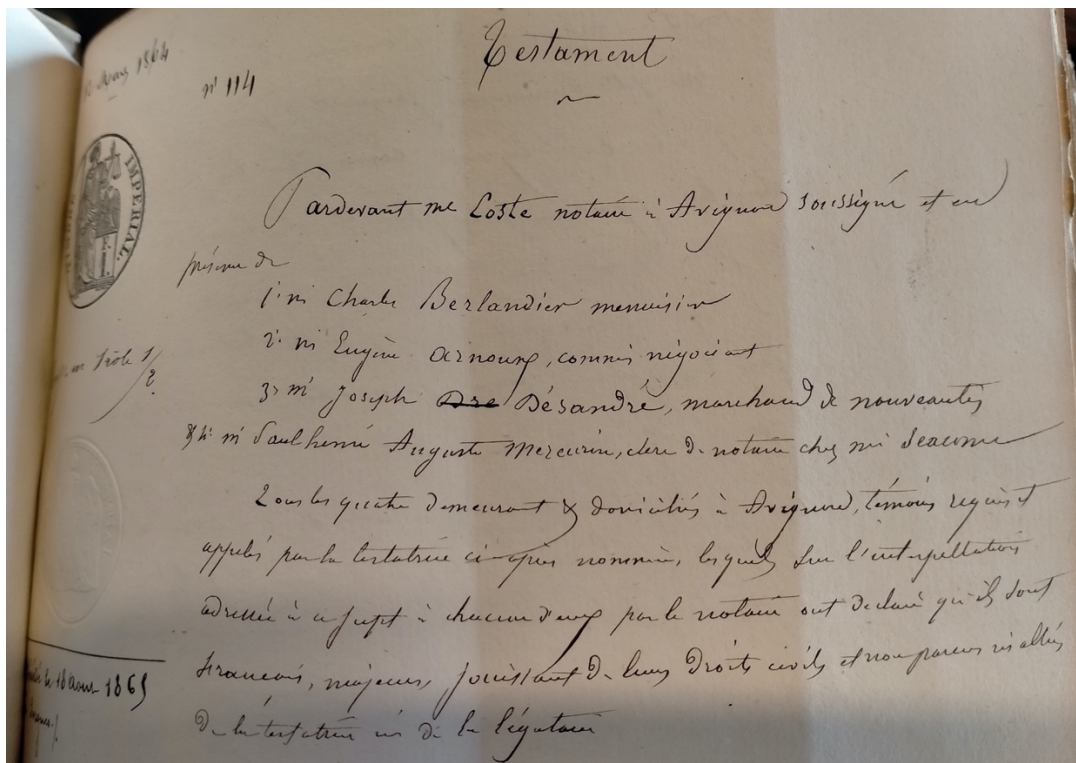 Mars 1864
n° 114
Testament
IMPERIAL.
Pardevant me Coste notaire à Avignon soussigné et en
présence de
1° mr Charles Berlandier menuisier
2° mr Eugène Arnoux, commis négociant
3° mr Joseph Dre Désandré, marchand de nouveautés
& 4° mr Paul henri Auguste Mercurin, clerc de notaire chez me Jeaume
Tous les quatre demeurant & domiciliés à Avignon, témoins requis et
appelés par la testatrice ci-après nommée, lesquels sur l'interpellation
adressée à ce sujet à chacun d'eux par le notaire ont déclaré qu'ils sont
français, majeurs, jouissant de leurs droits civils et non parens ni alliés
de la testatrice ni de la légataire
rôle 1/2
le 18 aout 1865